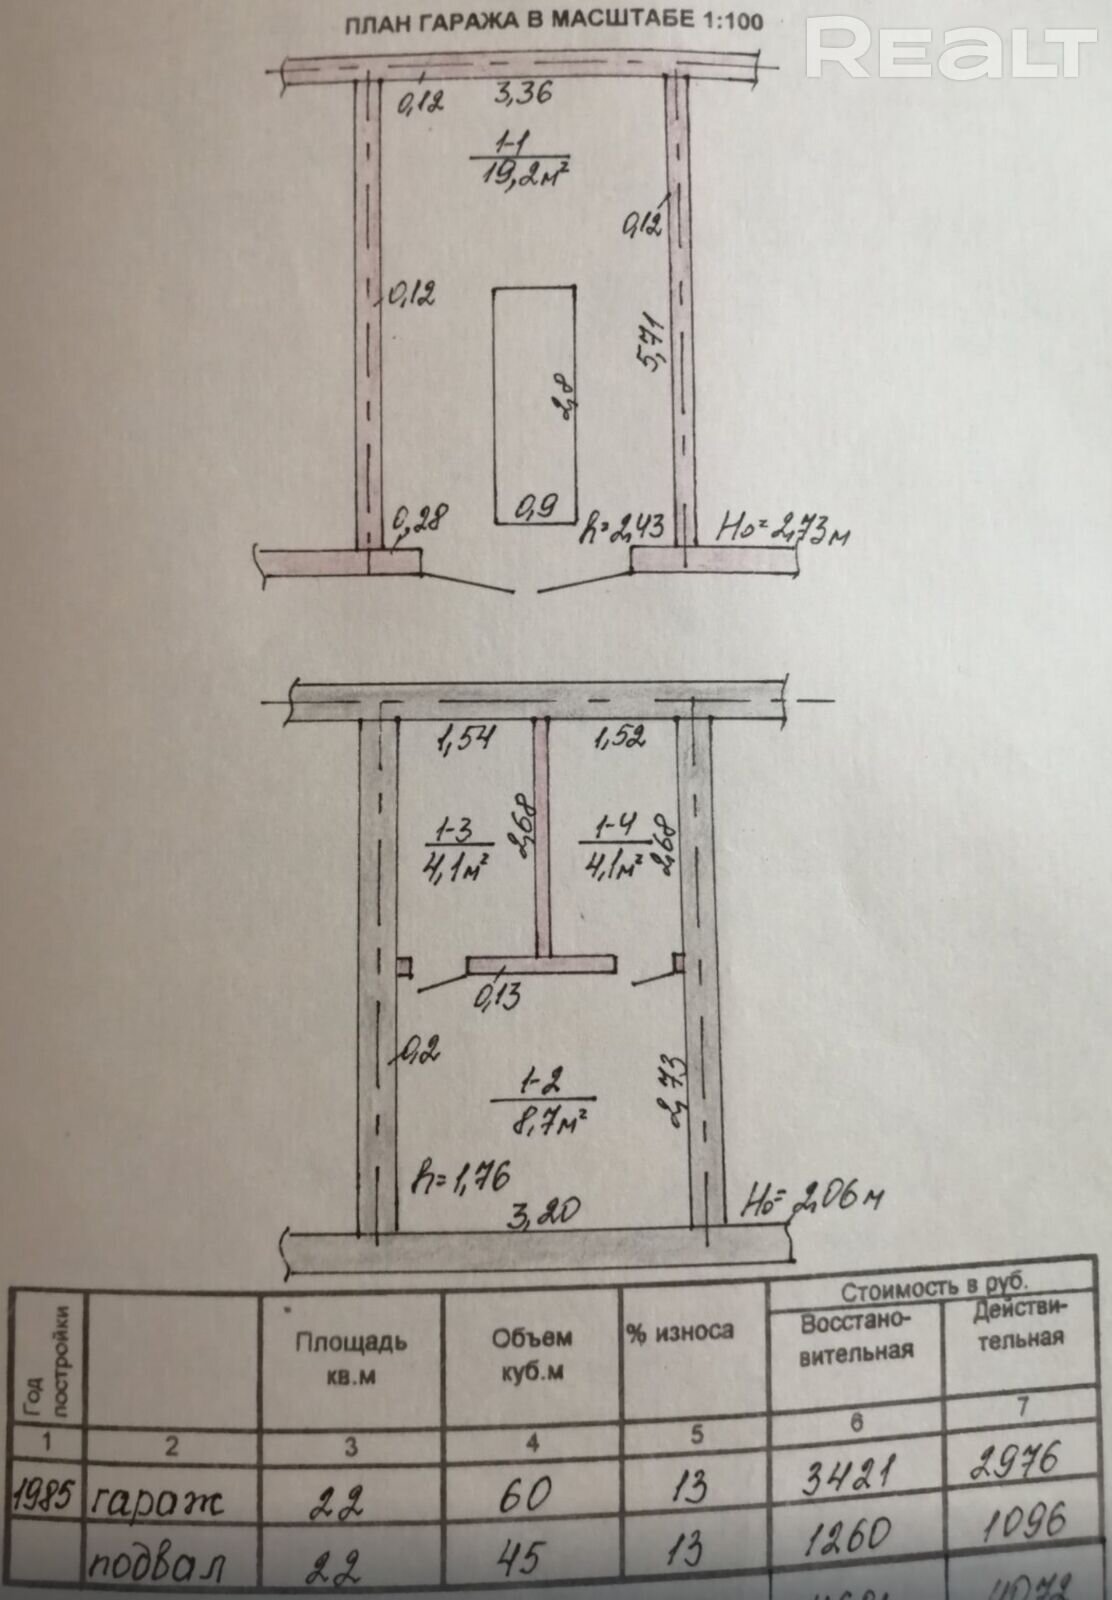 ПЛАН ГАРАЖА В МАСШТАБЕ 1:100
REALT
0,12
3,36
1-1
19,2м²
0,12
0,12
5,71
2,8
0,9
0,28
h=2,43
Hо=2,73м
1,54
1,52
1-3
4,1м²
2,68
1-4
4,1м²
2,68
0,13
0,2
1-2
8,7м²
2,73
h=1,76
3,20
Hо=2,06м
Год постройки
Площадь кв.м
Объем куб.м
% износа
Стоимость в руб.
Восстано-
вительная
Действи-
тельная
1 2 3 4 5 6 7
1985 гараж 22 60 13 3421 2976
подвал 22 45 13 1260 1096
4072